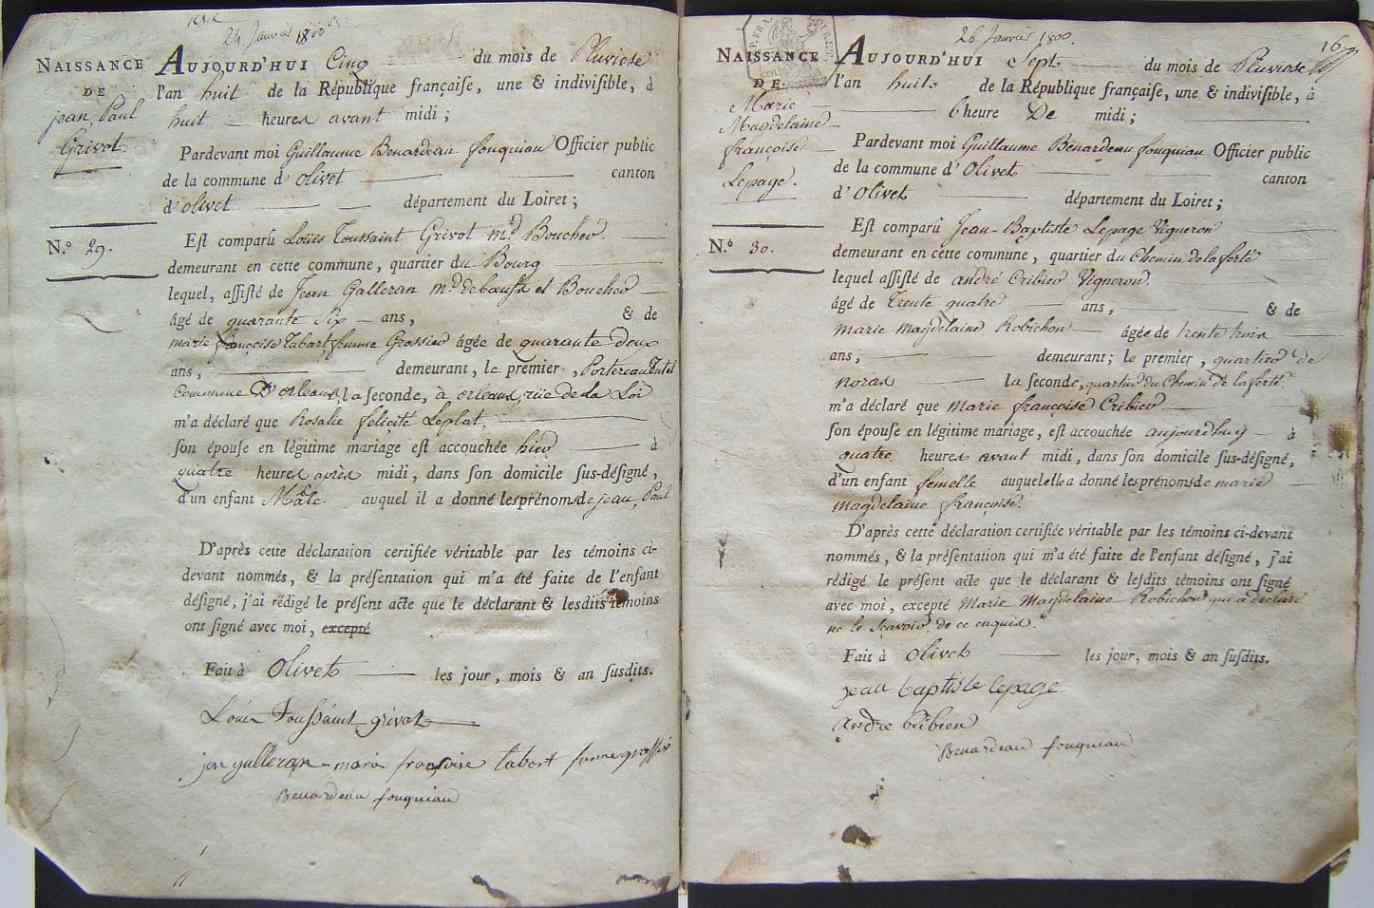 24 Janvier 1800
NAISSANCE
DE
jean, Paul
Grivot
N.º 29.
AUJOURD'HUI Cinq du mois de Pluviose
l'an huit de la République françaiſe, une & indiviſible, à
huit heures avant midi ;
Pardevant moi Guillaume Benardeau fouquiau Officier public
de la commune d'Olivet canton
d'olivet département du Loiret ;
Eſt comparû Loüis Toussaint Grivot m.d Boucher
demeurant en cette commune, quartier du Bourg
lequel, aſſiſté de Jean Galleran m.d et Boucher
âgé de quarante Six ans, & de
marie françoise Tabart femme Grossier âgée de quarante deux
ans, demeurant, le premier, Portereau
Commune D'orleans, la ſeconde, à orleans, rüe de la Loi
m'a déclaré que Rosalie felicité Leplat,
ſon épouſe en légitime mariage eſt accouchée hier à
quatre heures après midi, dans ſon domicile ſus-déſigné,
d'un enfant Mâle auquel il a donné les prénoms de jean, Paul
D'après cette déclaration certifiée véritable par les témoins ci-
devant nommés, & la préſentation qui m'a été faite de l'enfant
déſigné, j'ai rédigé le préſent acte que le déclarant & lesdits témoins
ont ſigné avec moi, excepté
Fait à Olivet les jour, mois & an ſusdits.
Loüis Toussaint grivot
jan galleran marie françoise tabart
Benardeau fouquiau
16
26 Janvier 1800.
NAISSANCE
DE
Marie
Magdelaine
françoise
Lepage.
N.º 30.
AUJOURD'HUI Sept du mois de Pluviose
l'an huit de la République françaiſe, une & indiviſible, à
6 heure De midi ;
Pardevant moi Guillaume Benardeau fouquiau Officier public
de la commune d'Olivet canton
d'Olivet département du Loiret ;
Eſt comparû Jean-Baptiste Lepage Vigneron
demeurant en cette commune, quartier du Chemin de la ferté
lequel aſſiſté de andré Cribier Vigneron
âgé de Trente quatre ans, & de
marie magdelaine Robichon âgée de trente trois
ans, demeurant ; le premier, quartier de
noras la ſeconde, quartier du Chemin de la ferté
m'a déclaré que marie françoise Cribier
ſon épouſe en légitime mariage, eſt accouchée aujourdhuy à
quatre heures avant midi, dans ſon domicile ſus-déſigné,
d'un enfant femelle auquel elle a donné les prénoms de marie
magdelaine françoise.
D'après cette déclaration certifiée véritable par les témoins ci-devant
nommés, & la préſentation qui m'a été faite de l'enfant déſigné, j'ai
rédigé le préſent acte que le déclarant & leſdits témoins ont ſigné
avec moi, excepté Marie Magdelaine Robichon qui a déclaré
ne le Scavoir de ce enquis.
Fait à Olivet les jour, mois & an ſuſdits.
jean baptiste lepage
andre cribier
Benardeau fouquiau